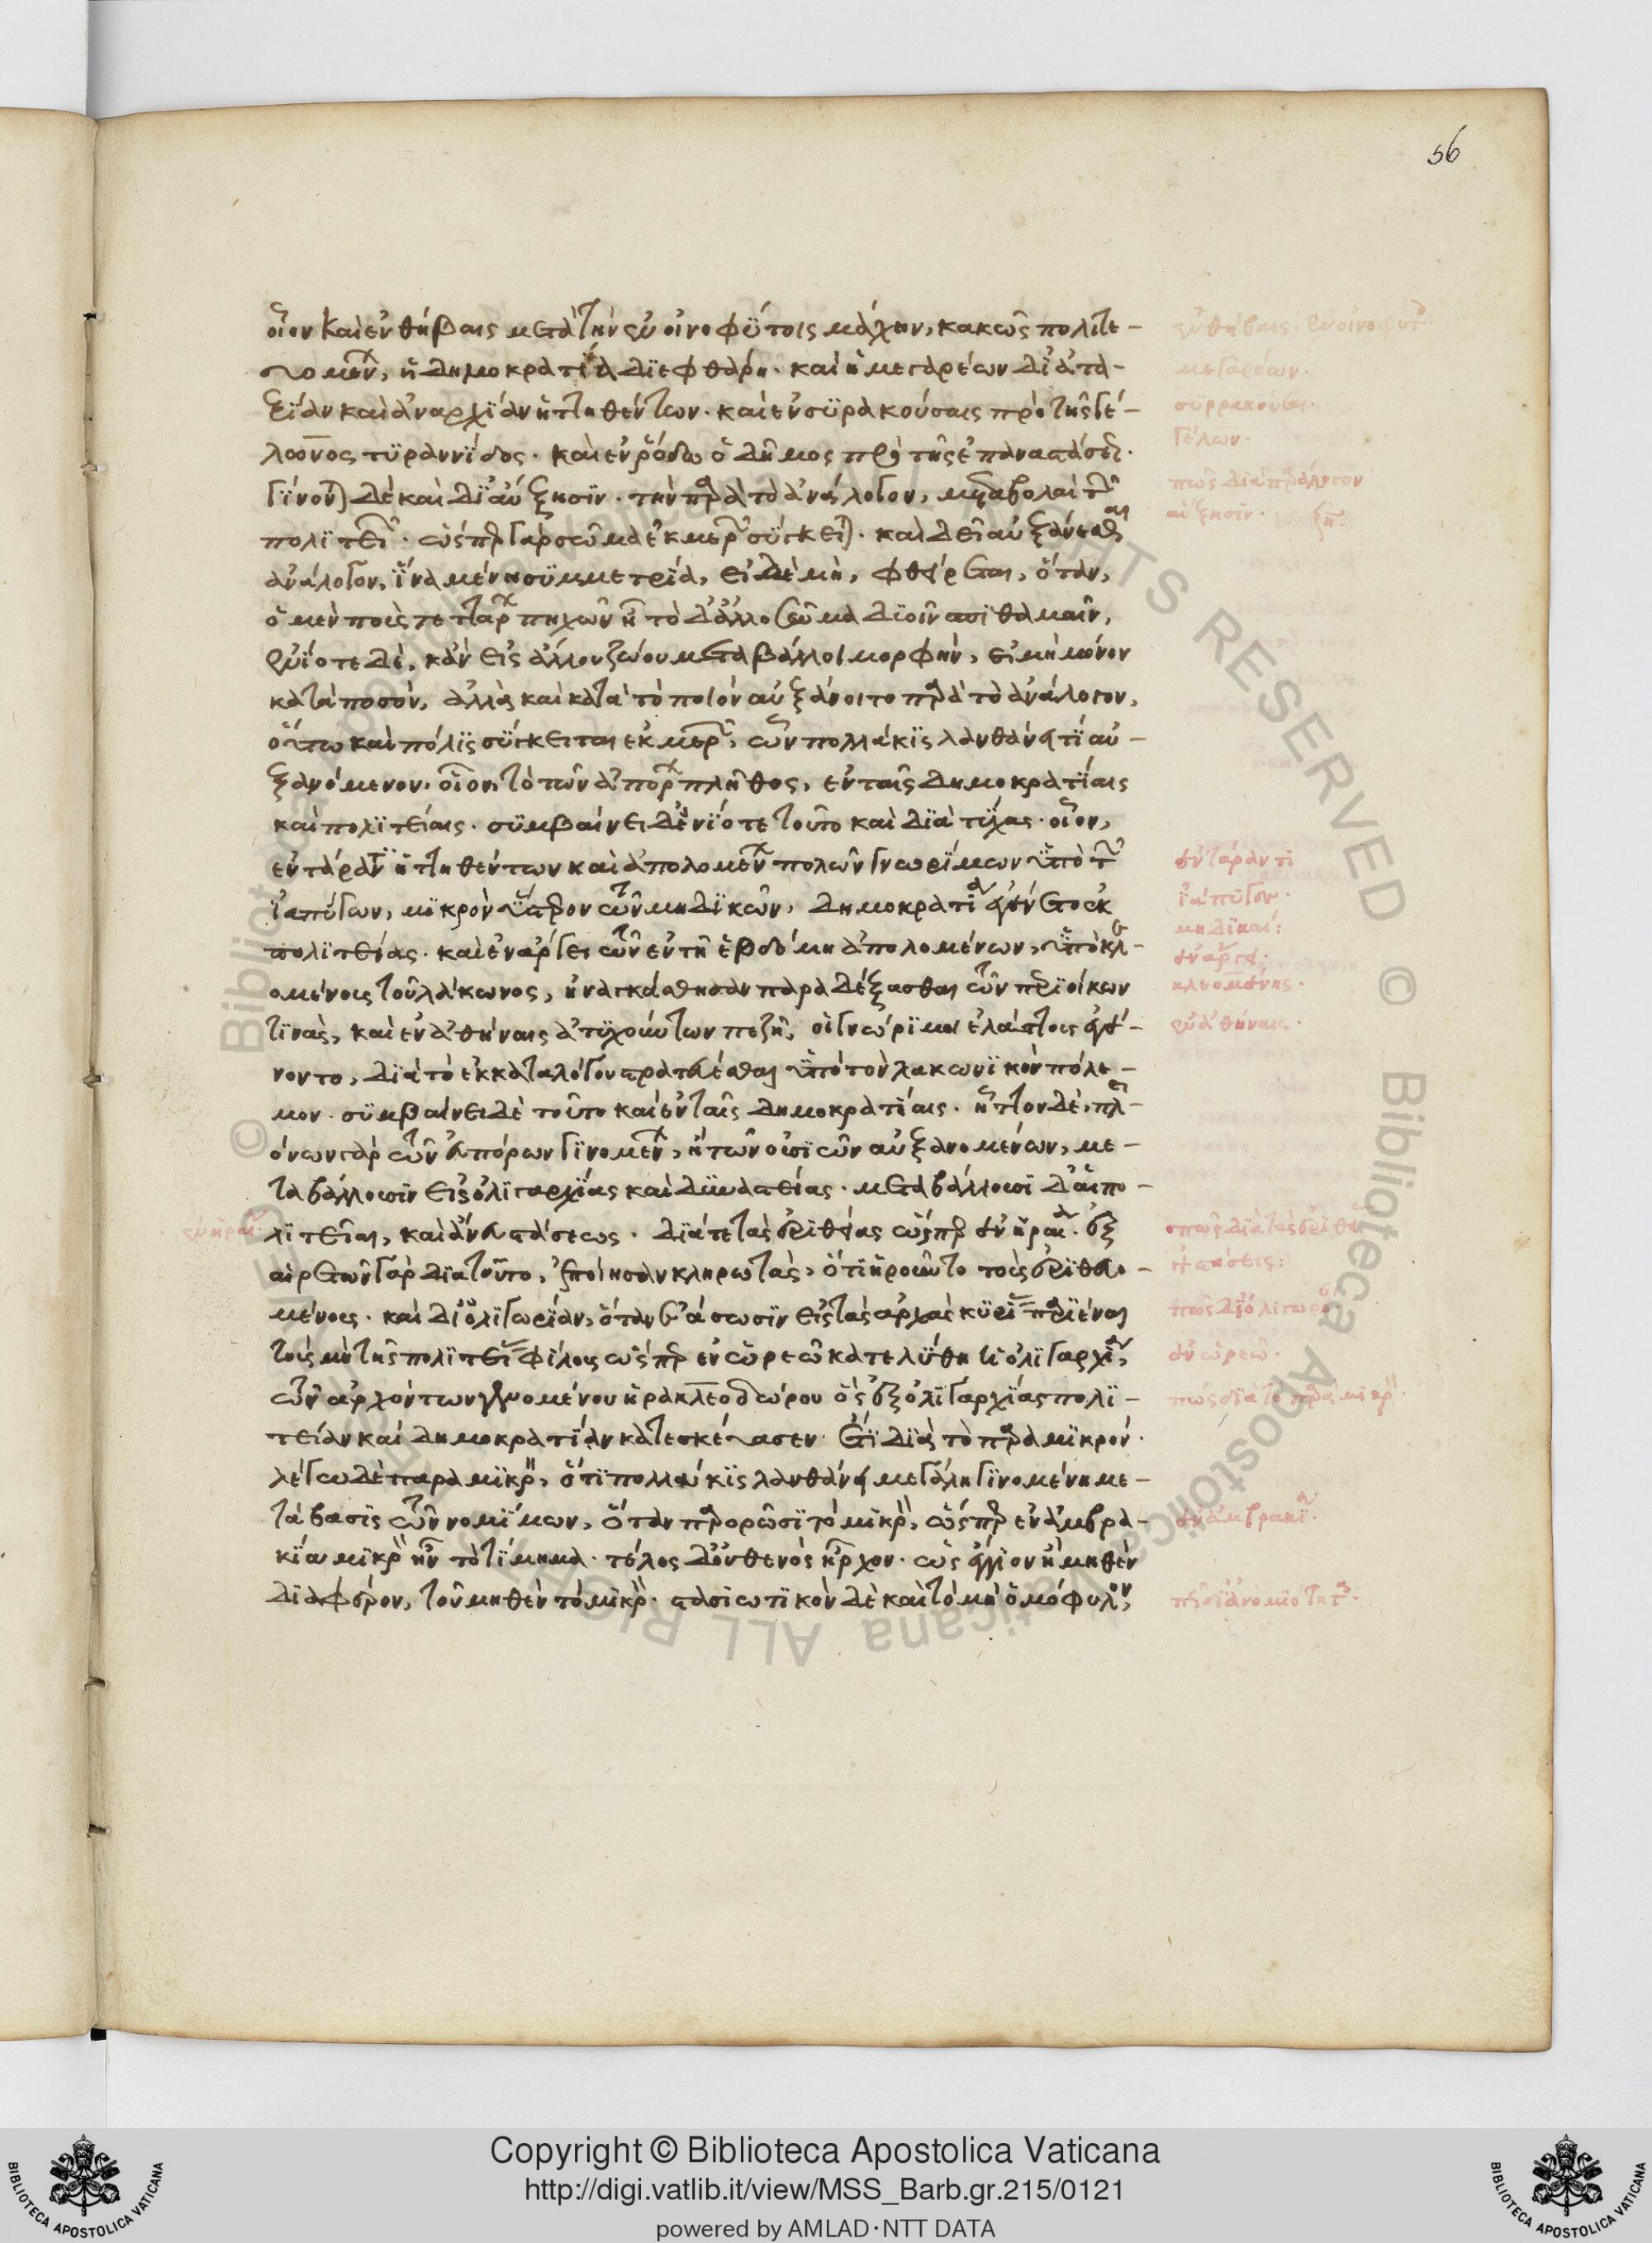 56
οἷον καὶ ἐν θήβαις μετὰ τὴν ἐν οἰνοφύτοις μάχην, κακῶς πολιτε-
υομένων, ἡ δημοκρατία διεφθάρη. καὶ ἡ μεγαρέων δι' ἀτα-
ξίαν καὶ ἀναρχίαν ἡττηθέντων. καὶ ἐν συρακούσαις πρὸ τῆς γέ-
λωνος τυραννίδος. καὶ ἐν ῥόδῳ ὁ δῆμος πρὸ τῆς ἐπαναστάσεως.
γίνονται δὲ καὶ δι' αὔξησιν τὴν παρὰ τὸ ἀνάλογον, μεταβολαὶ τῶν
πολιτειῶν. ὥσπερ γὰρ σῶμα ἐκ μερῶν σύγκειται. καὶ δεῖ αὐξάνεσθαι
ἀνάλογον, ἵνα μένῃ συμμετρία, εἰ δὲ μὴ, φθείρεται, ὅταν,
ὁ μὲν ποὺς τεττάρων πηχῶν ᾖ τὸ δ' ἄλλο σῶμα δυοῖν σπιθαμαῖν,
ἐνίοτε δὲ, κἂν εἰς ἄλλου ζώου μεταβάλλοι μορφὴν, εἰ μὴ μόνον
κατὰ ποσὸν, ἀλλὰ καὶ κατὰ τὸ ποιὸν αὐξάνοιτο παρὰ τὸ ἀνάλογον,
οὕτω καὶ πόλις σύγκειται ἐκ μερῶν, ὧν πολλάκις λανθάνει τι αὐ-
ξανόμενον. οἷον, τὸ τῶν ἀπόρων πλῆθος, ἐν ταῖς δημοκρατίαις
καὶ πολιτείαις. συμβαίνει δ' ἐνίοτε τοῦτο καὶ διὰ τύχας. οἷον,
ἐν τάραντι ἡττηθέντων καὶ ἀπολομένων πολλῶν γνωρίμων ὑπὸ τῶν
ἰαπύγων, μικρὸν ὕστερον τῶν μηδικῶν, δημοκρατία ἐγένετο ἐκ
πολιτείας. καὶ ἐν ἄργει τῶν ἐν τῇ ἑβδόμῃ ἀπολομένων, ὑπὸ κλε-
ομένους τοῦ λάκωνος, ἠναγκάσθησαν παραδέξασθαι τῶν περιοίκων
τινὰς, καὶ ἐν ἀθήναις ἀτυχούντων πεζῇ, οἱ γνώριμοι ἐλάττους ἐγέ-
νοντο, διὰ τὸ ἐκ καταλόγου στρατεύεσθαι ὑπὸ τὸν λακωνικὸν πόλε-
μον. συμβαίνει δὲ τοῦτο καὶ ἐν ταῖς δημοκρατίαις. ἧττον δὲ, πλει-
όνων γὰρ τῶν ἀπόρων γινομένων, ἢ τῶν οὐσιῶν αὐξανομένων, με-
ταβάλλουσιν εἰς ὀλιγαρχίας καὶ δυναστείας. μεταβάλλουσι δ' αἱ πο-
λιτεῖαι, καὶ ἄνευ στάσεως. διά τε τὰς ἐριθείας ὥσπερ ἐν ἡραίᾳ. ἐξ
αἱρετῶν γὰρ διὰ τοῦτο, ἐποίησαν κληρωτάς, ὅτι ᾑροῦντο τοὺς ἐριθευο-
μένους. καὶ δι' ὀλιγωρίαν, ὅταν ἐάσωσιν εἰς τὰς ἀρχὰς κυρίας παριέναι
τοὺς μὴ τῆς πολιτείας φίλους ὥσπερ ἐν ὠρεῷ κατελύθη ἡ ὀλιγαρχία,
τῶν ἀρχόντων γενομένου ἡρακλεοδώρου ὃς ἐξ ὀλιγαρχίας πολι-
τείαν καὶ δημοκρατίαν κατεσκεύασεν. ἔτι διὰ τὸ παρὰ μικρόν.
λέγω δὲ παρὰ μικρόν, ὅτι πολλάκις λανθάνει μεγάλη γινομένη με-
τάβασις τῶν νομίμων, ὅταν παρορῶσι τὸ μικρὸν, ὥσπερ ἐν ἀμβρα-
κίᾳ μικρὸν ἦν τὸ τίμημα. τέλος δ' οὐθενὸς ἦρχον. ὡς ἔγγιον ἢ μηθὲν
διαφέρον, τοῦ μηθὲν τὸ μικρόν. στασιωτικὸν δὲ καὶ τὸ μὴ ὁμόφυλον,
ἐν θήβαις. ἐν οἰνοφύτοις
μεγαρέων.
συρρακούσαι.
γέλων.
πῶς διὰ παράλογον
αὔξησιν.
ἐν τάραντι
ἰαπύγων.
μηδικαί:
ἐν ἄργει.
κλεομένης.
ἐν ἀθήναις.
ἐν ἡραίᾳ.
ὅπως διὰ τὰς ἐριθείας
στάσεις:
πῶς δι' ὀλιγωρίαν
ἐν ὠρεῷ.
πῶς διὰ τὸ παρὰ μικρόν.
ἐν ἀμβρακίᾳ.
Copyright © Biblioteca Apostolica Vaticana
http://digi.vatlib.it/view/MSS_Barb.gr.215/0121
powered by AMLAD·NTT DATA
BIBLIOTECA APOSTOLICA VATICANA
BIBLIOTECA APOSTOLICA VATICANA
© Biblioteca Apostolica Vaticana ALL RIGHTS RESERVED